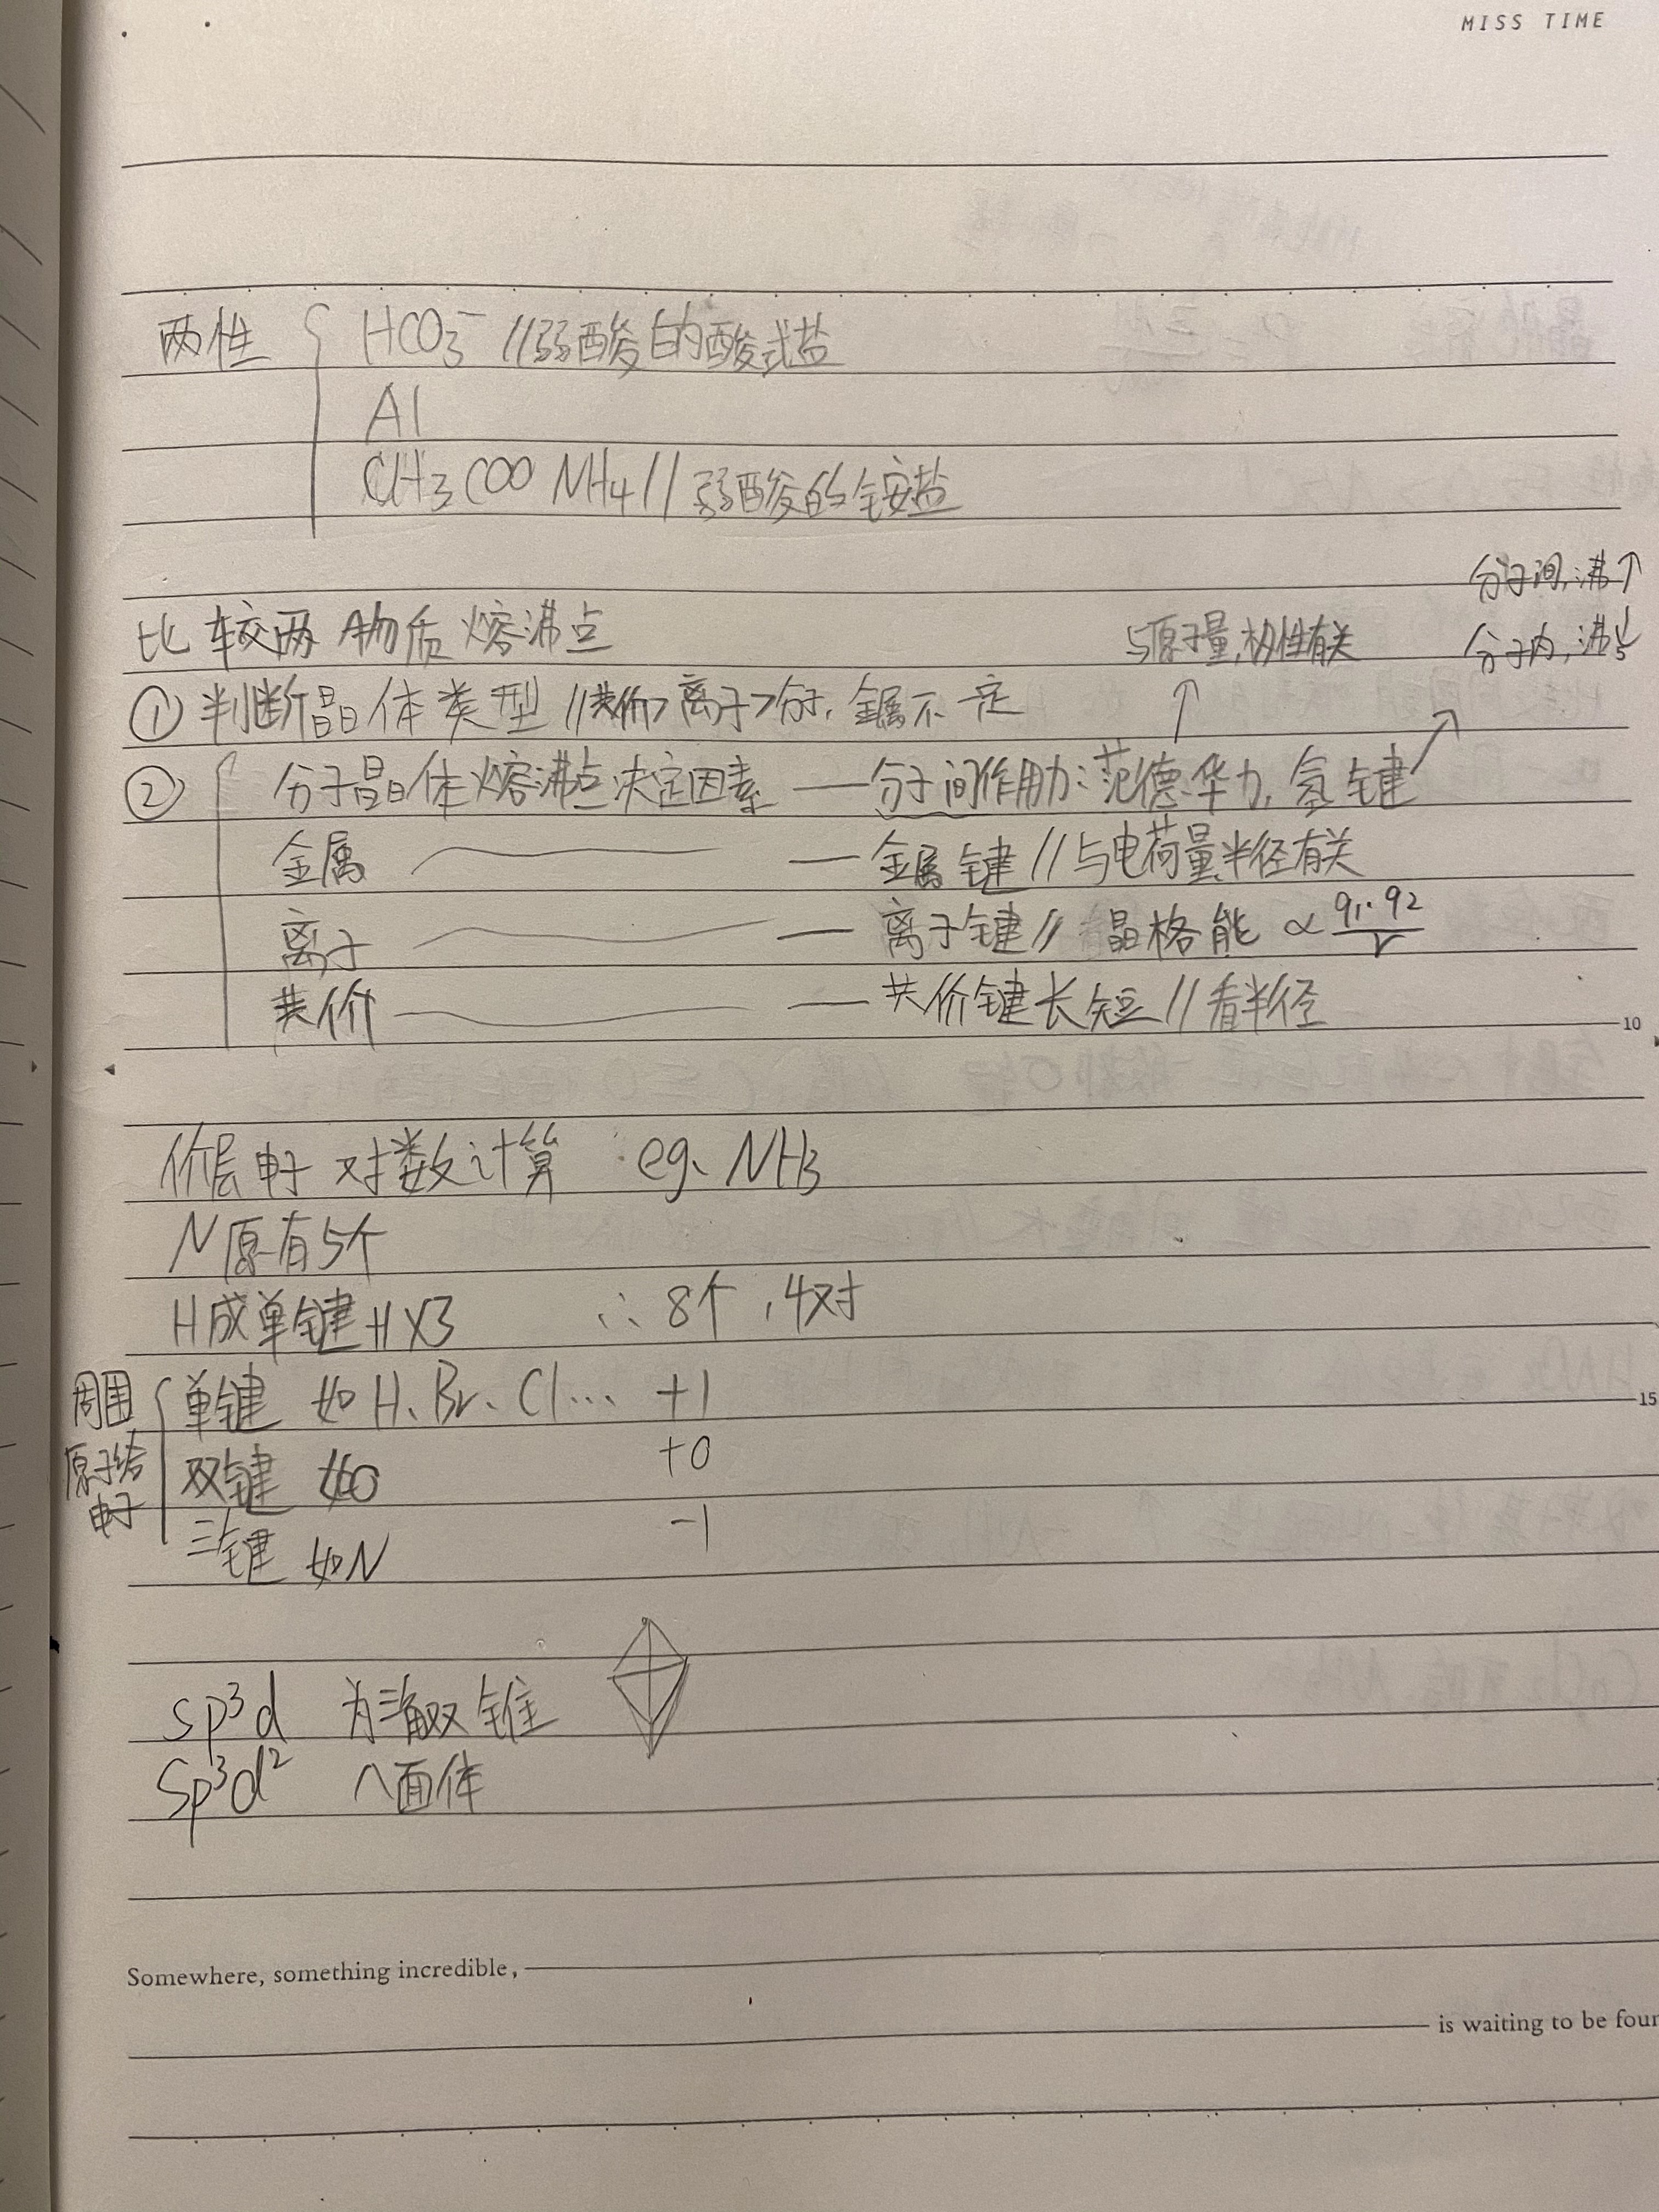 MISS TIME
两性 { HCO₃⁻ //弱酸的酸式盐
Al
CH₃COONH₄ // 弱酸的铵盐
分子间,沸↑
比较两物质熔沸点 与原子量,极性有关 分子内,沸↓
① 判断晶体类型 //共价>离子>分子,金属不一定
② { 分子晶体熔沸点决定因素 — 分子间作用力:范德华力,氢键
金属 — 金属键 // 与电荷量,半径有关
离子 — 离子键 // 晶格能 ∝ q₁·q₂/r
共价 — 共价键长短 // 看半径
10
价层电子对数计算 eg. NH₃
N原有5个
H成单键 H×3 ∴ 8个,4对
周围原子给电子 { 单键 如H、Br、Cl... +1
15
双键 如O +0
三键 如N -1
sp³d 为三角双锥
sp³d² 八面体
Somewhere, something incredible,
is waiting to be four